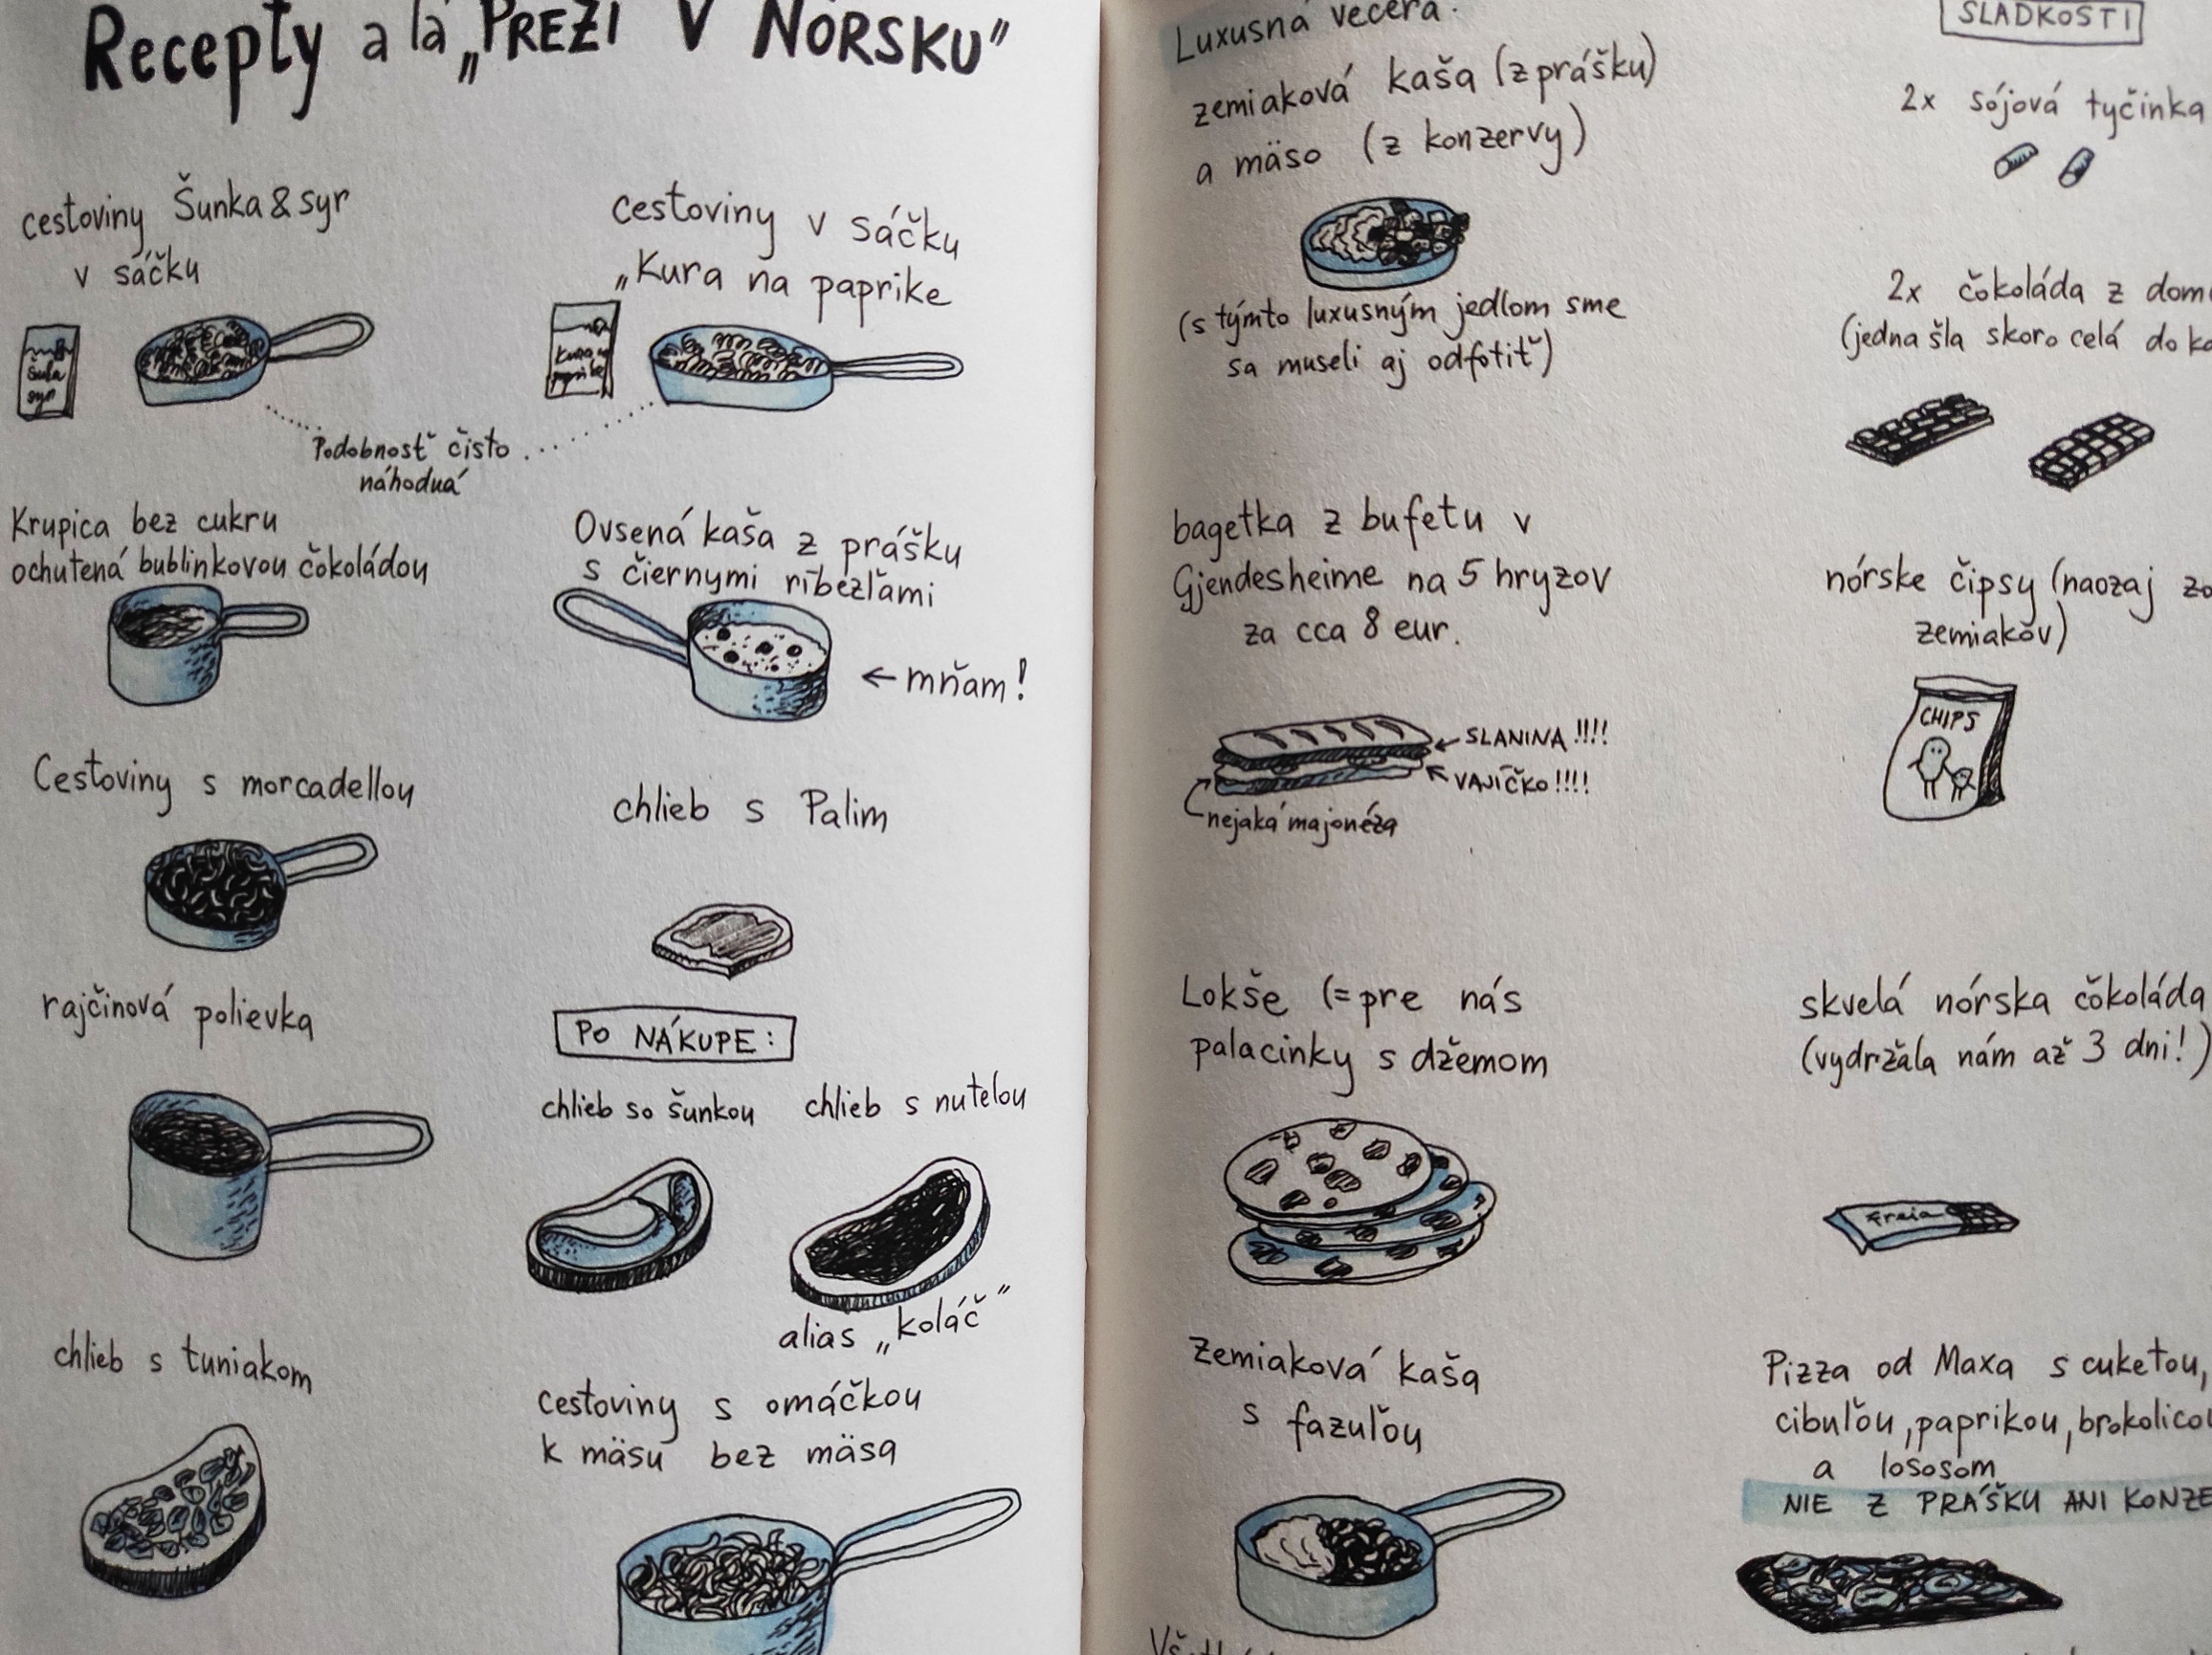 Recepty a la „PREŽI V NÓRSKU"
cestoviny Šunka & syr
v sáčku
Šunka
syr
cestoviny v sáčku
„Kura na paprike
Kura na
paprike
Podobnosť čisto
náhodná
Krupica bez cukru
ochutená bublinkovou čokoládou
Ovsená kaša z prášku
s čiernymi ríbezľami
← mňam!
Cestoviny s morcadellou
chlieb s Palim
rajčinová polievka
PO NÁKUPE:
chlieb so šunkou
chlieb s nutelou
alias „koláč"
chlieb s tuniakom
cestoviny s omáčkou
k mäsu bez mäsa
Luxusná večera:
zemiaková kaša (z prášku)
a mäso (z konzervy)
(s týmto luxusným jedlom sme
sa museli aj odfotiť)
bagetka z bufetu v
Gjendesheime na 5 hryzov
za cca 8 eur.
SLANINA !!!!
VAJÍČKO !!!!
nejaká majonéza
Lokše (= pre nás
palacinky s džemom
Zemiaková kaša
s fazuľou
SLADKOSTI
2x sójová tyčinka
2x čokoláda z
(jedna šla skoro celá do
nórske čipsy (naozaj
zemiakov)
CHIPS
skvelá nórska čokoláda
(vydržala nám až 3 dni!)
Freia
Pizza od Maxa s cuketou,
cibuľou, paprikou,
a lososom
NIE Z PRÁŠKU ANI